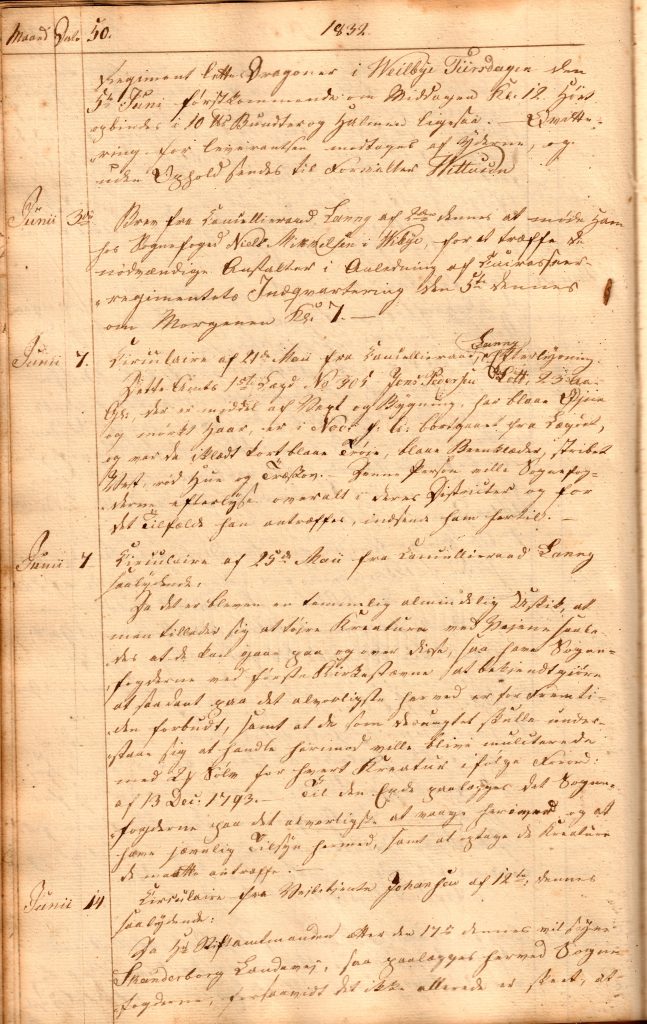 Maaned Dato 50. 1832.
Regiment lette Dragoner i Weilbye Tiirsdagen den
5te Juni förstkommende om Middagen Kl. 12. Höet
opbindes i 10 Bundter og Halmen ligesaa. – Qvitte-
ring for leverantsen modtages af Yderne, og
uden Ophold sendes til Forvalter
Junii 3die Brev fra Cancellieraad Lanng af dennes at møde ham
hos Sognefoged Niels Mikkelsen i Vibye, for at træffe de
nödvændige Anstalter i Anledning af Cuirasseer-
regimentets Indqvartering den 5te dennes
om Morgenen Kl. 7. –
Junii 7. Circulaire af 21de Maii fra Cancellieraad Lanng, Efterlysning.
Dette Amts 1ste Lægd No 305 Jens Pedersen 25 Aar
der er middel af Vext og Bygning, har blaae Öine
og mörkt Haar, er i Nov. f. A. bortgaaet fra Lægdet,
og var da iklædt kort blaae Tröie, blaae Beenklæder, stribet
Vest, röd Hue og Træskoe. – Denne Person ville Sognefog-
derne efterlyse overalt i deres Districter og for
det Tilfælde han antræffes, indsende ham hertil. –
Junii 7 Circulaire af 25de Maii fra Cancellieraad Lanng
saalydende:
Da det er bleven en temmelig almindelig Uskik, at
man tillader sig at töire Kreature ved Veiene saale-
des at de kan gaae paa og over disse, saa have Sogne-
fogderne ved förste Kirkestævne at bekjendtgiöre
at saadant paa det alvorligste herved er for Fremti-
den forbudt, samt at de som desuagtet skulle under-
staae sig at handle herimod ville blive mulcterede
med Sölv for hvert Kreatur ifölge Forord:
af 13 Dec. 1793. – Til den Ende paalægges det Sogne-
fogderne paa det alvorligste at vaage herover og at
have jævnlig Tilsyn hermed, samt at optage de Kreature
de maatte antræffe. –
Junii 14 Circulaire fra Veibetjente Johansen af 12te dennes
saalydende:
Da Hr. Stiftamtmanden efter den 17de dennes vil
Skanderborg Landevej, saa paalægges herved Sogne-
fogderne, forsaavidt det ikke allerede er skeet, at